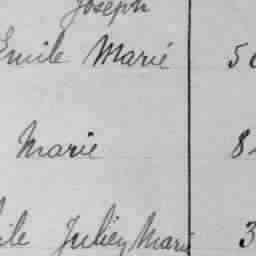 Joseph
Emile Marie 5
Marie 8
Julien Marie 3